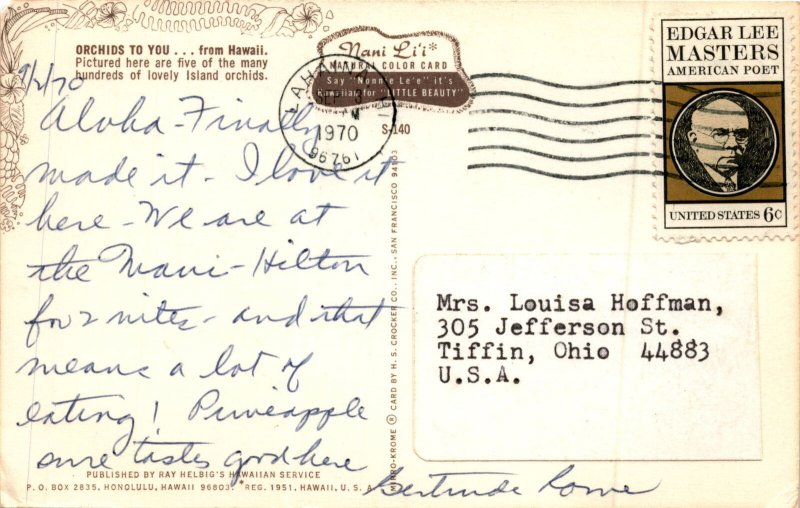 ORCHIDS TO YOU . . . from Hawaii.
Pictured here are five of the many
hundreds of lovely Island orchids.
Nani Li'i*
NATURAL COLOR CARD
Say "Nonnie Le'e" it's
Hawaiian for "LITTLE BEAUTY"
S-140
LAHAINA, HI
SEP 3
1970
96761
EDGAR LEE
MASTERS
AMERICAN POET
UNITED STATES 6c
9/2/70
Aloha - Finally
made it - I love it
here - We are at
the Maui - Hilton
for 2 nites - and that
means a lot of
eating! Pineapple
sure tastes good here
Gertrude
Mrs. Louisa Hoffman,
305 Jefferson St.
Tiffin, Ohio 44883
U.S.A.
MIRRO-KROME ® CARD BY H. S. CROCKER CO., INC., SAN FRANCISCO 94103
PUBLISHED BY RAY HELBIG'S HAWAIIAN SERVICE
P. O. BOX 2835, HONOLULU, HAWAII 96803. *REG. 1951, HAWAII, U. S. A.